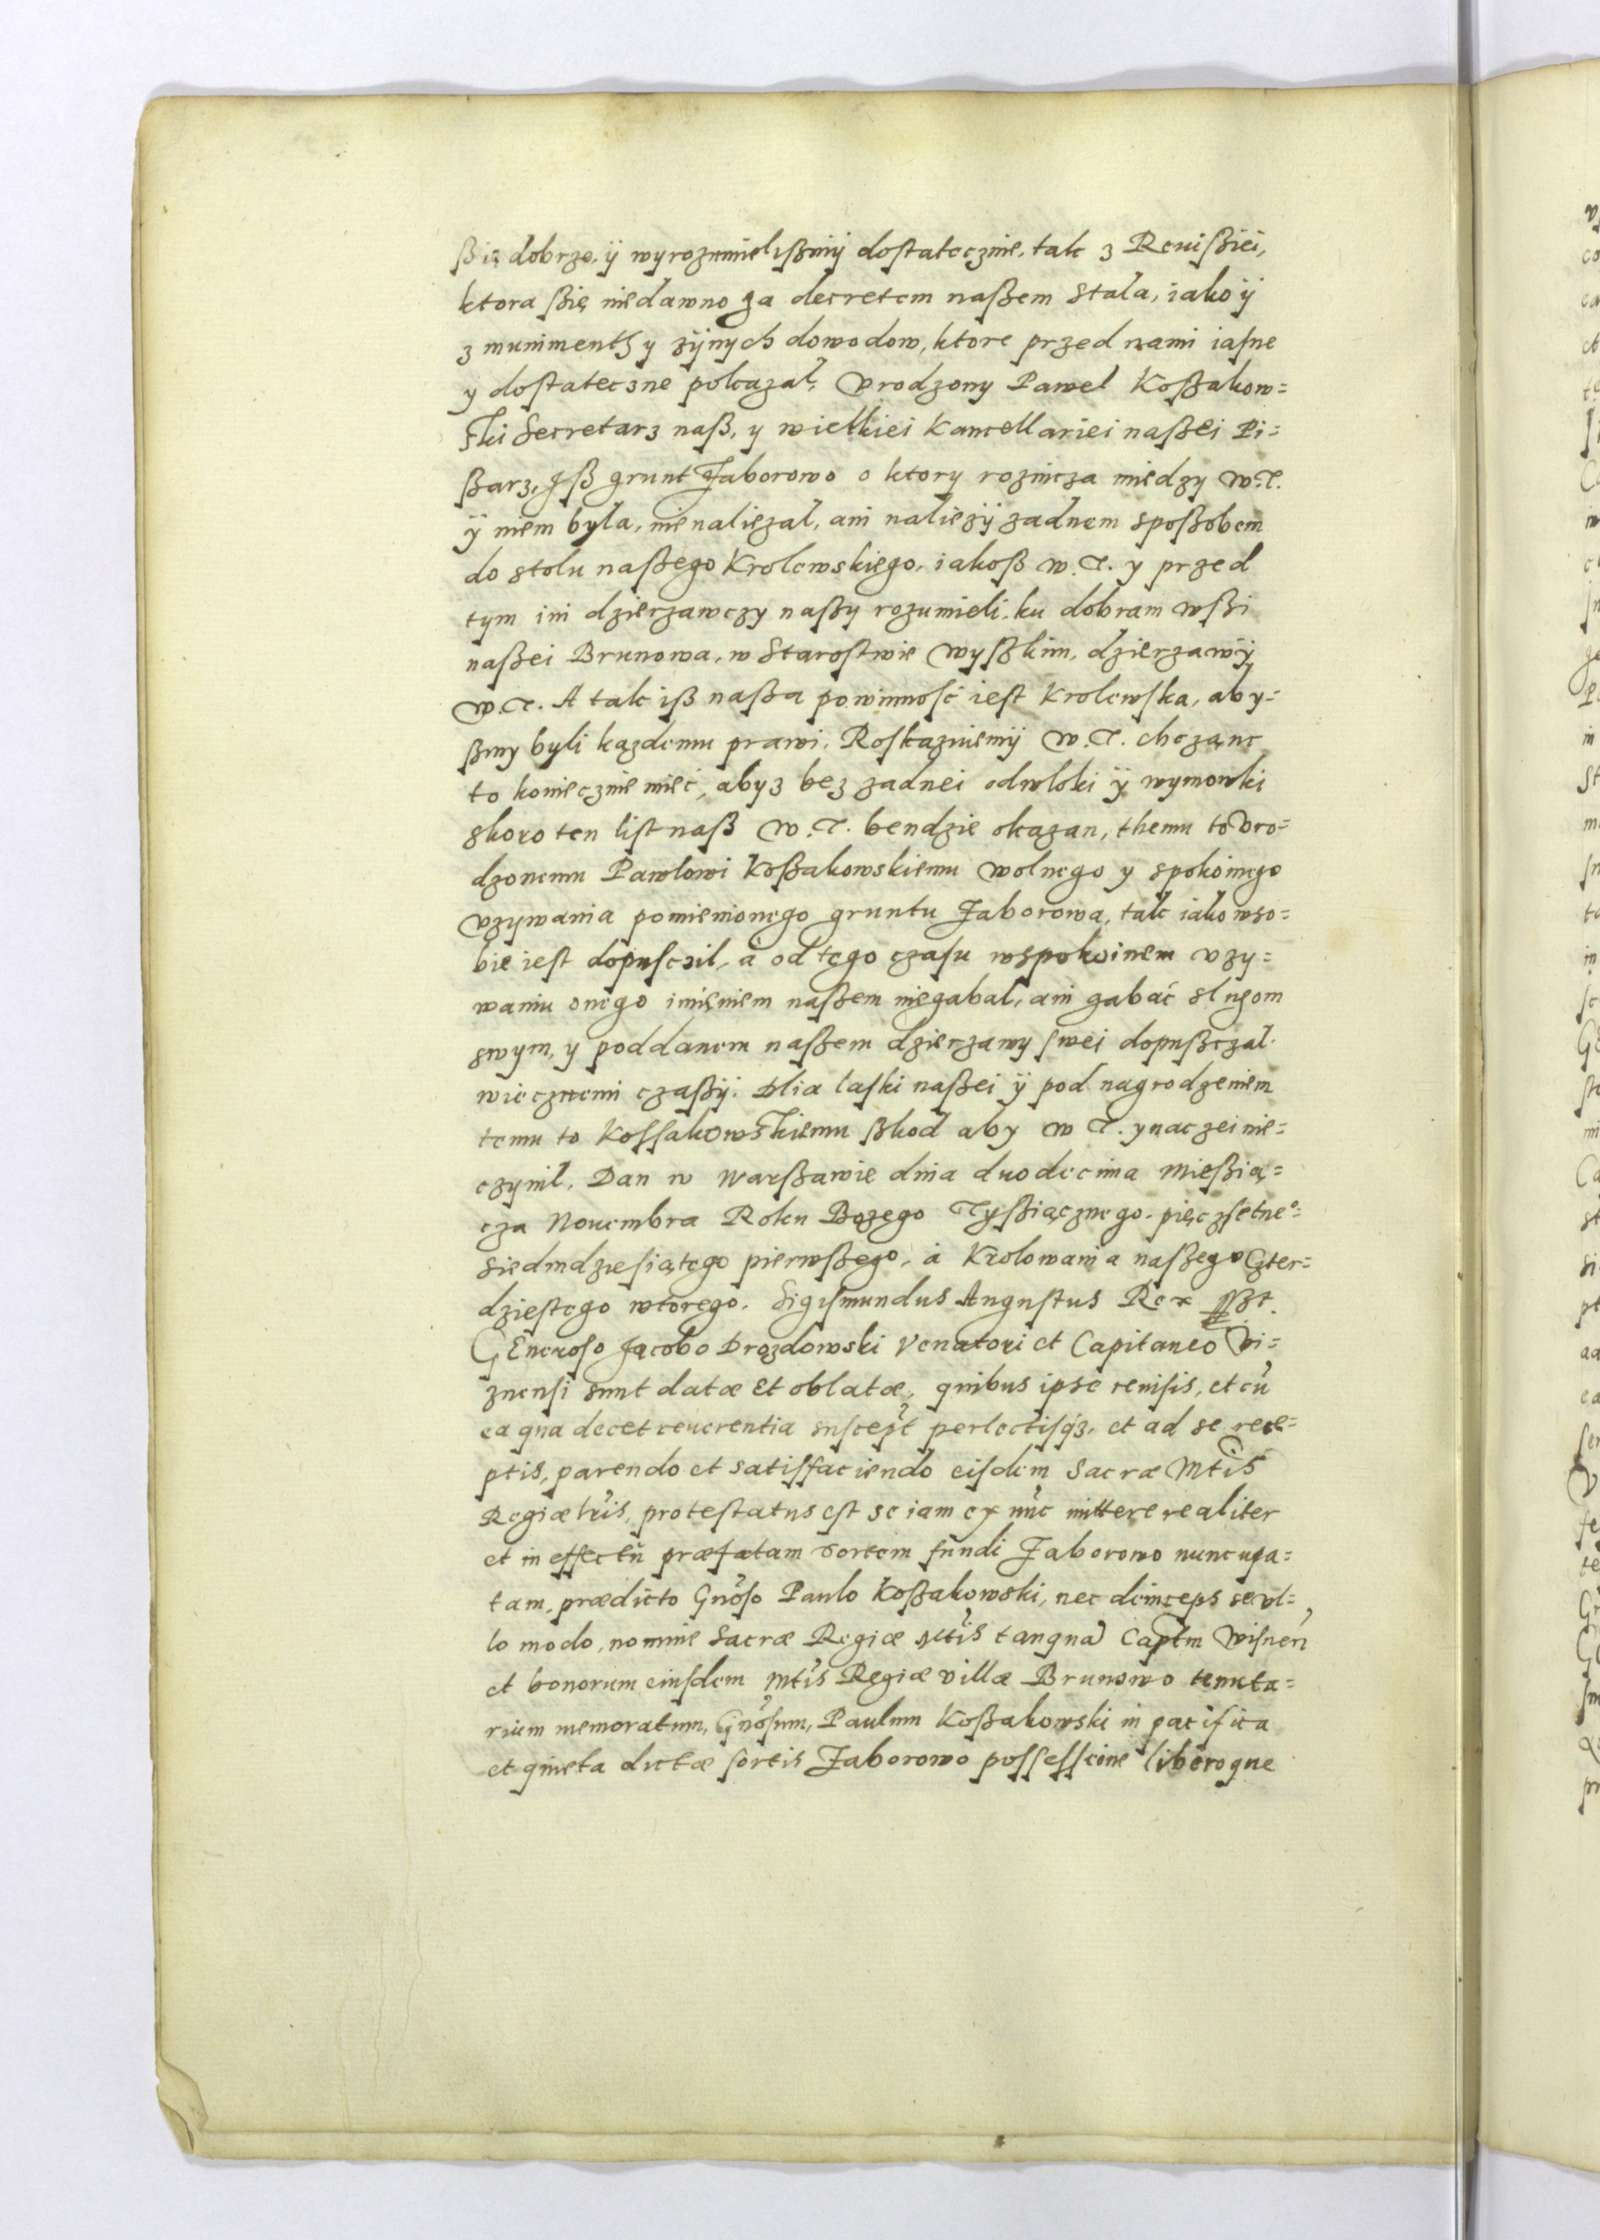 ßię dobrze, ÿ wyrozumielißmÿ dostatecznie, tak z Reuißiei,
ktora ßię niedawno za decretem naßem stala, iako ÿ
z muniments y zÿnych dowodow, ktore przed nami iasne
y dostateczne pokazal, Vrodzony Pawel Koßakow=
ski Secretarz naß, y wielkiei Kancellariei naßei Pi=
ßarz, Iß grunt Jaborowo o ktory roznicza miedzy W.T.
ÿ niem byla, nie naliezal, ani naliezÿ zadnem sposßobem
do stolu naßego Krolewskiego, iakoß W.T. y przed
tym ini dzierzawczy naßy rozumieli, ku dobram wßi
naßei Brunowa, w Starostwie Wyßkim, dzierzawÿ
W.T. A tak iß naßa powinnosć iest Krolewska, aby=
ßmy byli kazdemu prawi, Roskazuiemÿ W.T. chczanc
to koniecznie mieć, abyz bez zadnei odwloki ÿ wymowki
skoro ten list naß W.T. bendzie okazan, themu to Vro=
dzonemu Pawlowi Koßakowskiemu wolnego y spokoinego
vzywania pomienionego gruntu Jaborowa, tak iako wso=
bie iest dopusczil, à od tego czasu wspokoinem vzy=
waniu onego imieniem naßem niegabal, ani gabać slugom
swym, y poddanem naßem dzierzawy swei dopußczal
wiecznemi czaßÿ. Dlia laski naßei ÿ pod nagrodzeniem
temu to Kossakowskiemu ßkod aby W T. ynaczei nie=
czynil. Dan w Warßawie dnia duodecima Mießią=
cza Nouembra Roku Bozego Tyßiącznego pięczsetne°=
Siedmdziesiątego pierwßego, à Krolowania naßego Czter=
dziestego wtorego. Sigismundus Augustus Rex ßßt.
GEneroso Jacobo Drozdowski Venatori et Capitaneo Vi=
znensi sunt datæ et oblatæ, quibus ipse reuisis, et cū
ea qua decet reuerentia suscept perlectisq3, et ad se rece=
ptis, parendo et satisfaciendo eisdem Sacræ Mtis
Regiæ lris, protestatus est se iam ex nūc mittere realiter
et in effectū præfatam Sortem fundi Jaborowo nuncupa=
tam, prædicto Gnoso Paulo Koßakowski, nec deinceps se vl=
lo modo, nomine Sacræ Regiæ Mtis tanquā Captm Wisneñ
et bonorum eiusdem Mtis Regiæ villæ Brunowo tenuta=
rium memoratum, Gnosum, Paulum Koßakowski in pacifica
et quieta dictæ sortis Jaborowo possessione liberoque